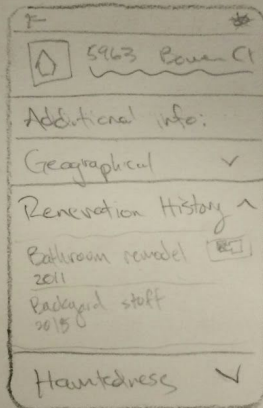 5963 Bowen Ct
Additional info:
Geographical
Renovation History
Bathroom remodel
2011
Backyard stuff
2015
Hauntedness